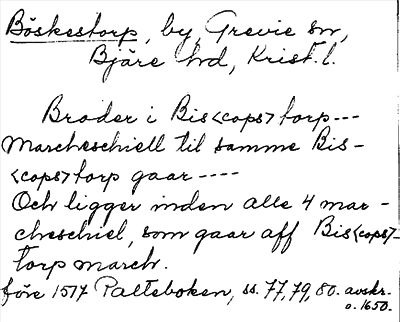 Böskestorp, by, Grevie sn,
Bjäre hd, Krist. l.
Broder i Bis<cops>torp---
Marcheschiell til samme Bis-
<cops>torp gaar----
Och ligger inden alle 4 mar-
cheschiel, som gaar aff Bis<cops>-
torp march.
före 1517 Palteboken, ss. 77, 79, 80. avskr.
o. 1650.